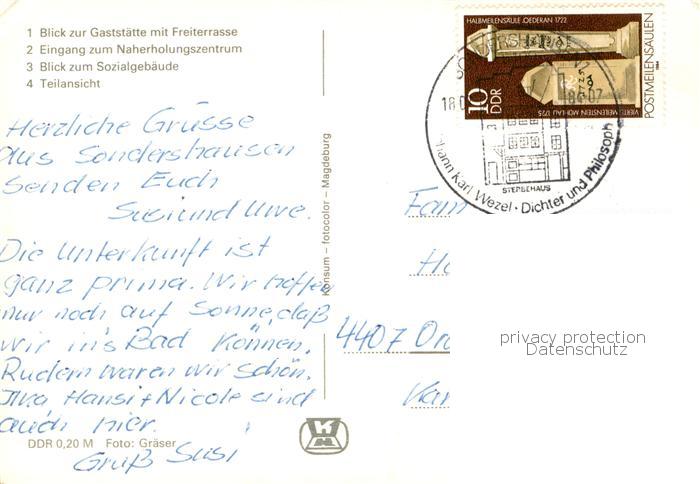 1 Blick zur Gaststätte mit Freiterrasse
2 Eingang zum Naherholungszentrum
3 Blick zum Sozialgebäude
4 Teilansicht
Herzliche Grüsse
aus Sondershausen
senden Euch
Susi und Uwe.
Die Unterkunft ist
ganz prima. Wir hoffen
nur noch auf Sonne, daß
wir in's Bad können.
Rudern waren wir schön.
Hansi + Nicole sind
auch hier.
Gruß Susi
DDR 0,20 M Foto: Gräser
Konsum – fotocolor – Magdeburg
HALBMEILENSÄULE JOEDERAN 1722
10 DDR
VIERTELMEILENSTEIN MÖHLAU 1725
POSTMEILENSÄULEN
STERBEHAUS
hann Karl Wezel · Dichter und Philosoph
Fam
4407
privacy protection
Datenschutz